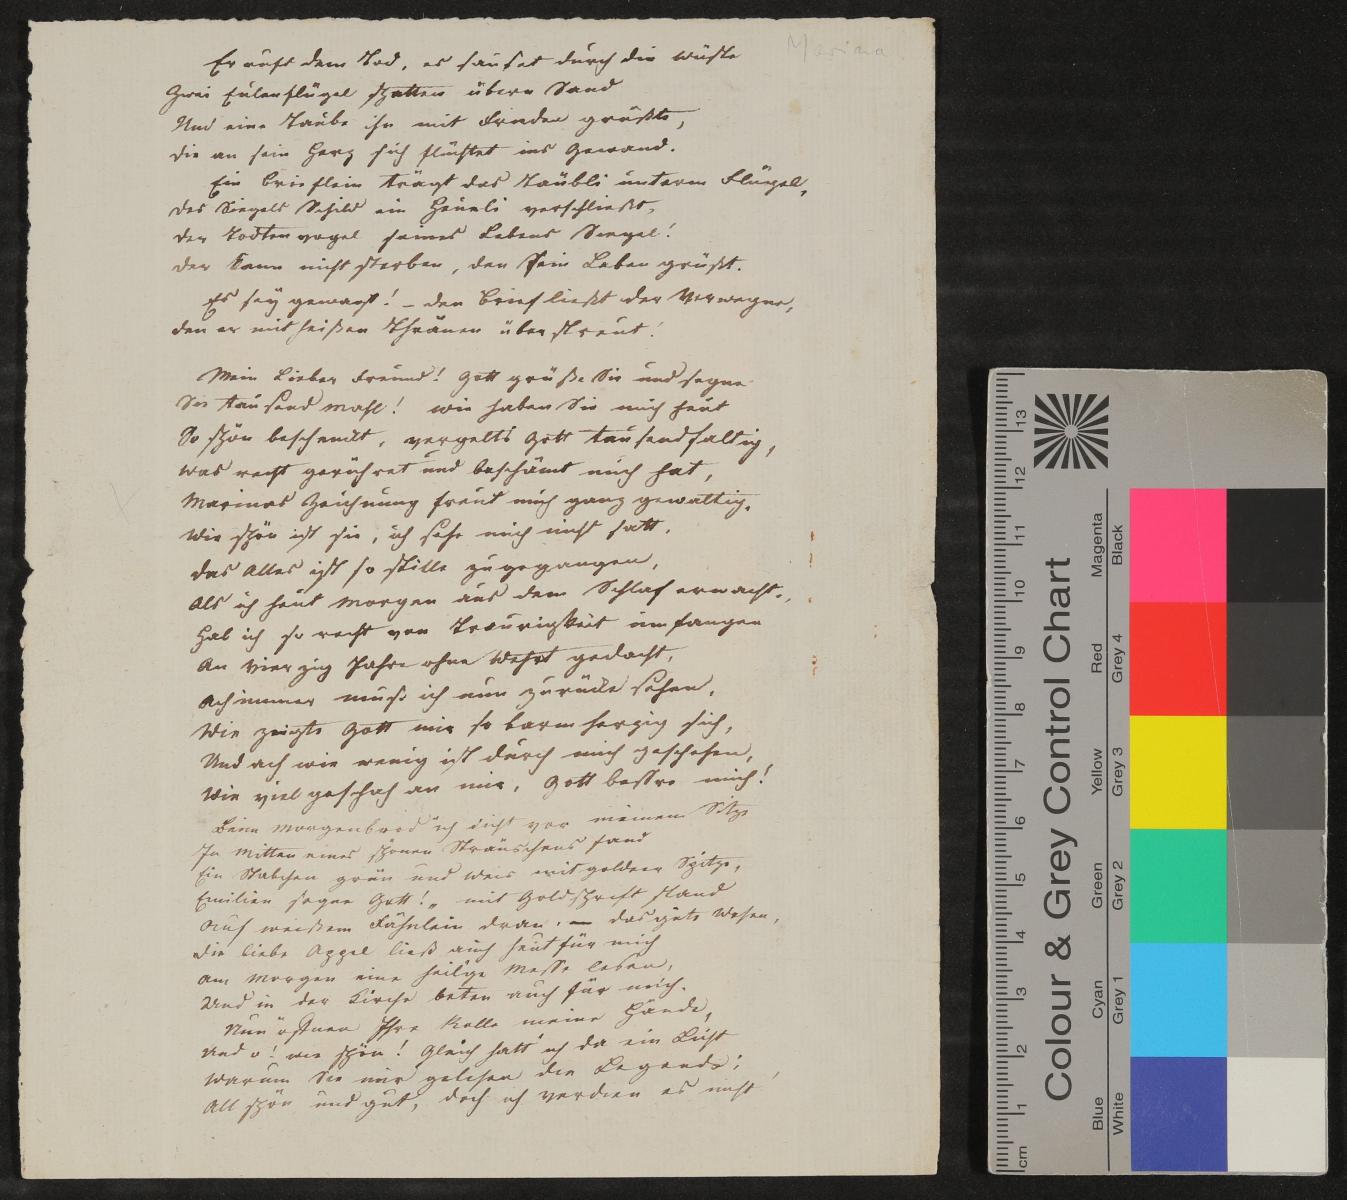 Marina
Er ruft dem Tod, es sauset durch die wüste
Zwei Eulenflügel schatten übern Sand
Und eine Taube ihn mit Frieden grüßte,
die an sein Herz sich flüchtet ins Gewand.
Ein Brieflein trägt das Täubli unterm Flügel,
des Siegels Schild ein Heueli verschließt,
der Todtenvogel seines Lebens Siegel!
der kann nicht sterben, den sein Leben grüßt.
Es sey gewagt! – den Brief ließt der Verwegne,
den er mit heißen Thränen überstreut!
Mein Lieber Freund! Gott grüße Sie und segne
Sie tausend mahl! wie haben Sie mich heut
So schön beschenkt, vergelts Gott tausendfaltig,
was recht gerühret und beschämt mich hat,
Marinas Zeichnung freut mich ganz gewaltig.
Wie schön ist sie, ich sehe mich nicht satt.
das Alles ist so stille zugegangen,
Als ich heut Morgen aus dem Schlaf erwacht.,
Hab ich so recht von Traurigkeit umfangen
An vierzig Jahre ohne Wehrt gedacht,
ach immer muß ich nun zurücke sehen,
Wie zeigte Gott mir so barmherzig sich,
Und ach wie wenig ist durch mich geschehen,
Wie viel geschah an mir, Gott bessre mich!
Beim Morgenbrod ich dicht vor meinem Sitze
In Mitten eines schönen Sträuschens fand
Ein Stabchen grün und weis mit goldner Spitze,
Emilien segne Gott!„ mit Goldschrift stand
Auf weißem Fähnlein dran. — das gute Wesen,
die liebe Appel ließ auch heut für mich
am Morgen eine heilge Messe lesen,
Und in der Kirche beten auch für mich.
Nun öffnen Ihre Rolle meine Hände,
und o! wie schön! Gleich hatt ich da ein Licht
Warum Sie mir geliehen die Legende;
All schön und gut, doch ich verdien es nicht